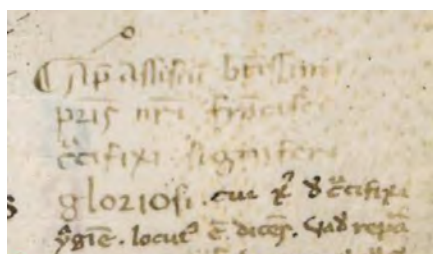 Ap assisiū btissimi
pris nri francisci
c̄cifixi signiferi
gloriosi . cui xp̄ d c̄cifixi
ygīe . locut' ē . dicēs . Vad repa